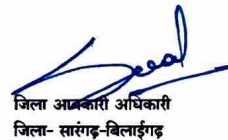 जिला आबकारी अधिकारी
जिला- सारंगढ़-बिलाईगढ़